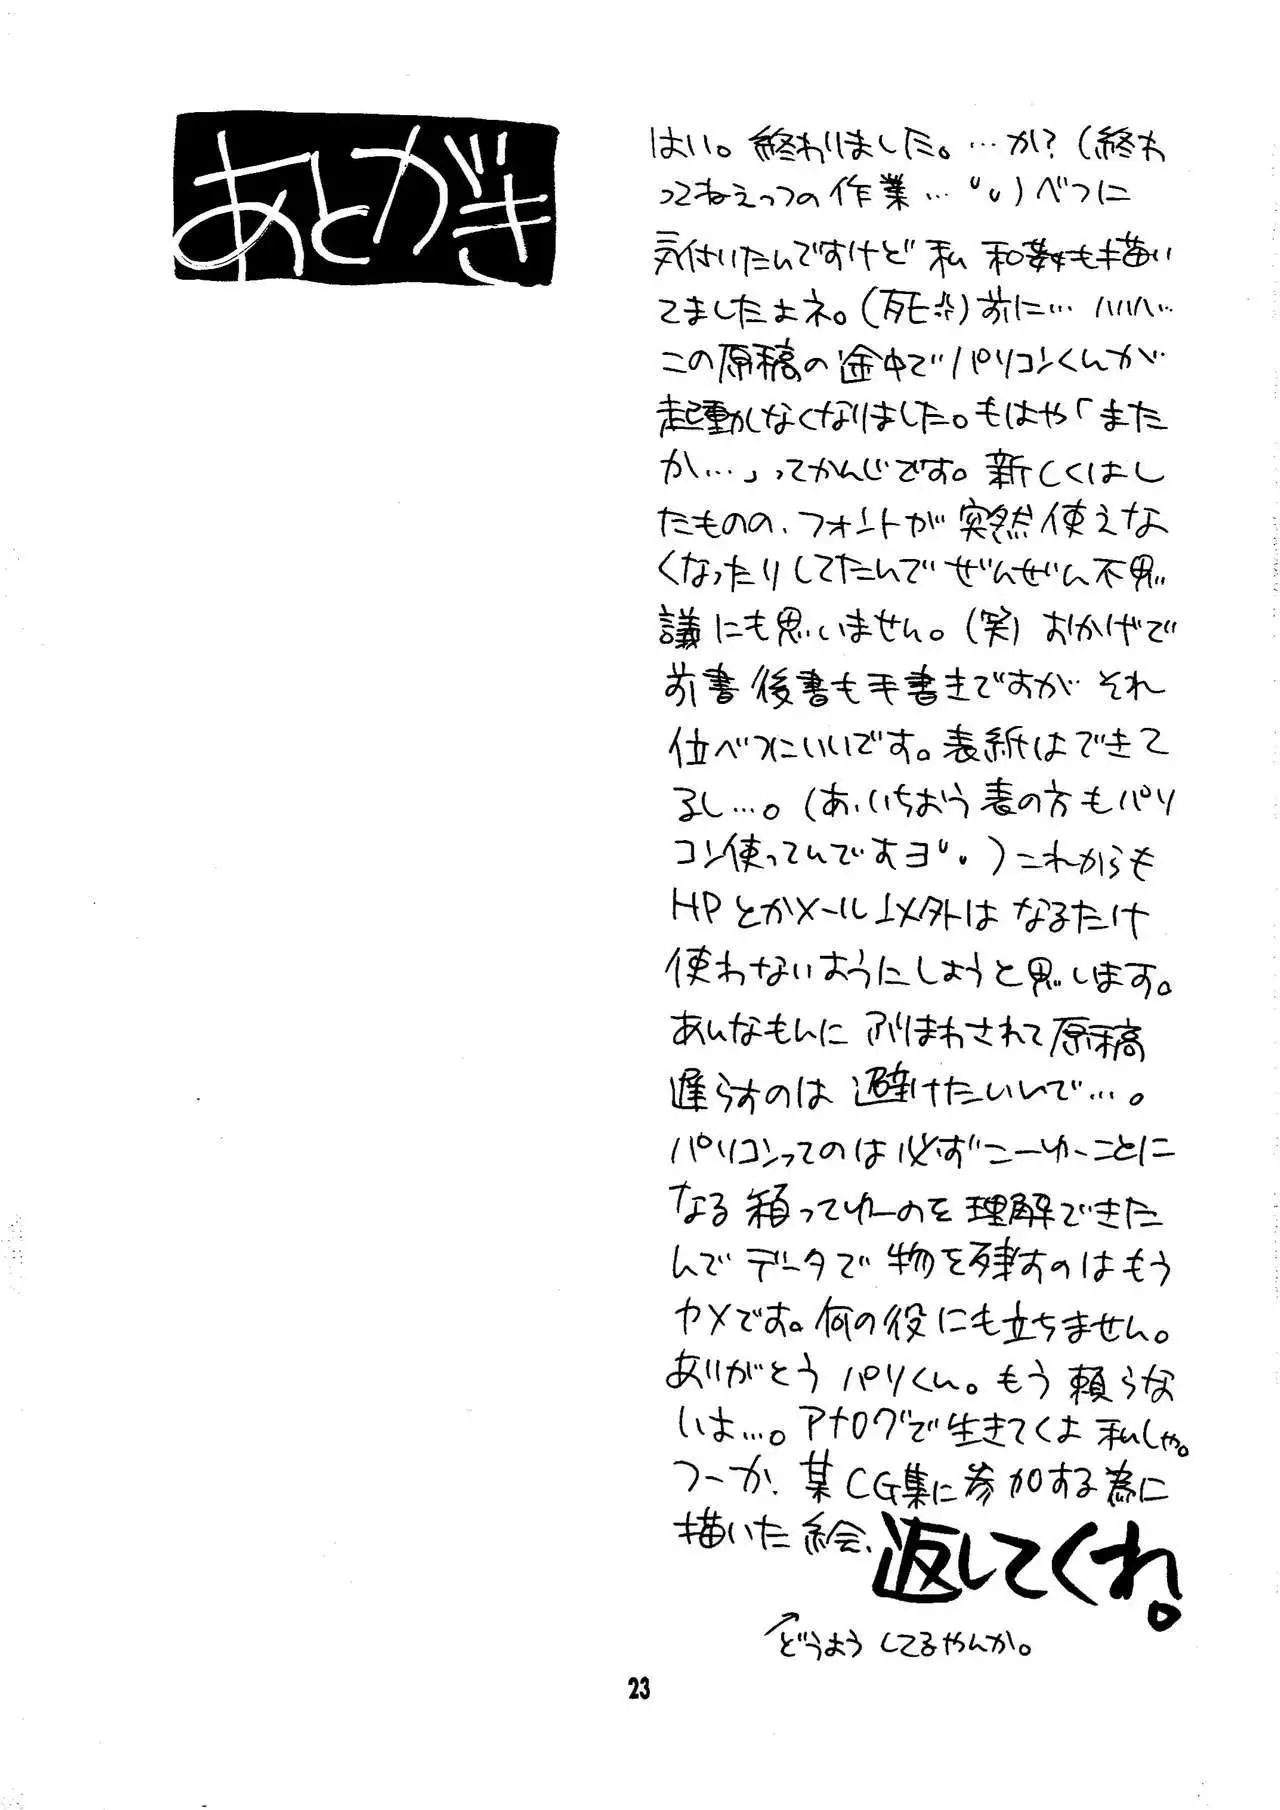 あとがき
はい。終わりました。…か?(終わ
ってねえっつの作業…)べつに
気付いたんですけど私 和姦も描い
てましたよネ。(死)前に…ハハハ…
この原稿の途中でパソコンくんが
起動しなくなりました。もはや「また
か…」ってかんじです。新しくはし
たものの、フォントが突然使えな
くなったりしてたんでぜんぜん不思
議にも思いません。(笑)おかげで
前書後書も手書きですが それ
位べつにいいです。表紙はできて
るし…。(あ、いちおう表の方もパソ
コン使ってんですヨ)これからも
HPとかメール以外は なるたけ
使わないようにしようと思います。
あんなもんに フリまわされて原稿
遅らすのは 避けたいんで…。
パソコンってのは必ずこーゆーことに
なる箱ってゆーのを理解できた
んでデータで物を残すのはもう
ヤメです。何の役にも立ちません。
ありがとう パソくん。もう 頼らな
いよ…。アナログで生きてくよ 私しゃ。
つーか、某CG集に参加する為に
描いた絵、返してくれ。
どうよう してるやんか。
23